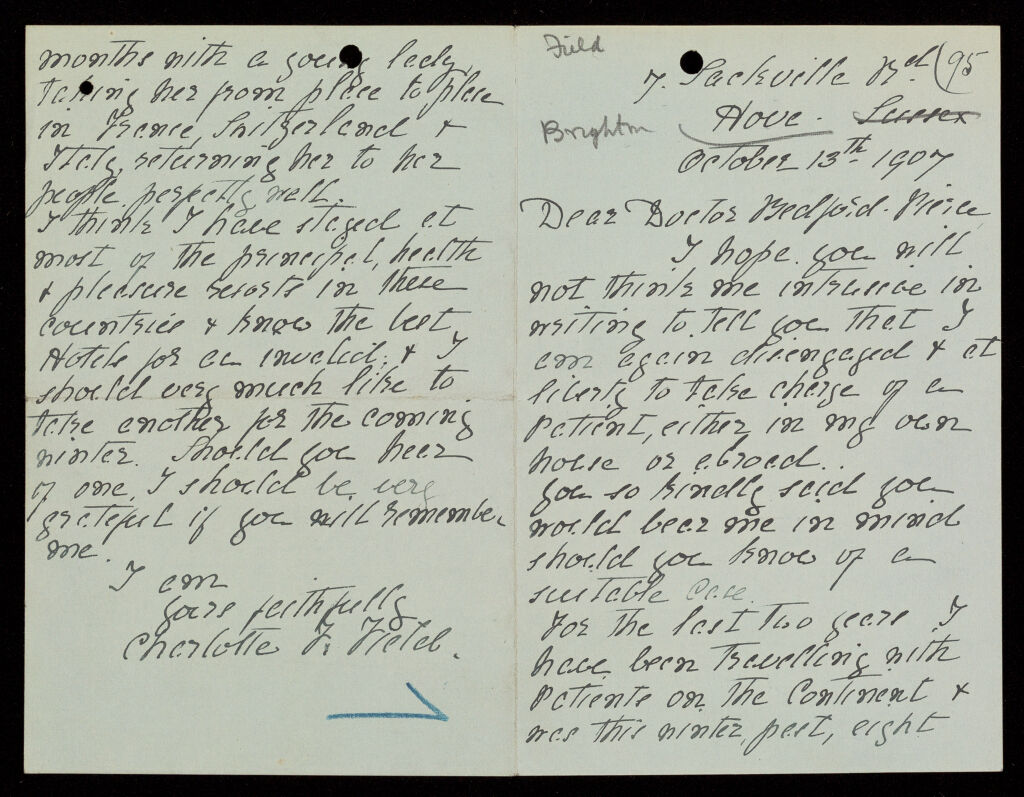 Field
7. Sackville Rd (95
Brighton
Hove. Sussex
October 13th 1907
Dear Doctor Bedford-Pierce
I hope you will
not think me intrusive in
writing to tell you that I
am again disengaged & at
liberty to take charge of a
Patient, either in my own
house or abroad..
You so kindly said you
would bear me in mind
should you know of a
suitable case.
For the last two years I
have been travelling with
Patients on the Continent &
was this winter, past, eight
months with a young lady,
taking her from place to place
in France, Switzerland &
Italy, returning her to her
people perfectly well.
I think I have stayed at
most of the principal, health
& pleasure resorts in these
countries & know the best
Hotels for an invalid: & I
should very much like to
take another for the coming
winter. Should you hear
of one, I should be very
grateful if you will remember
me.
I am
Yours faithfully
Charlotte F. Field.